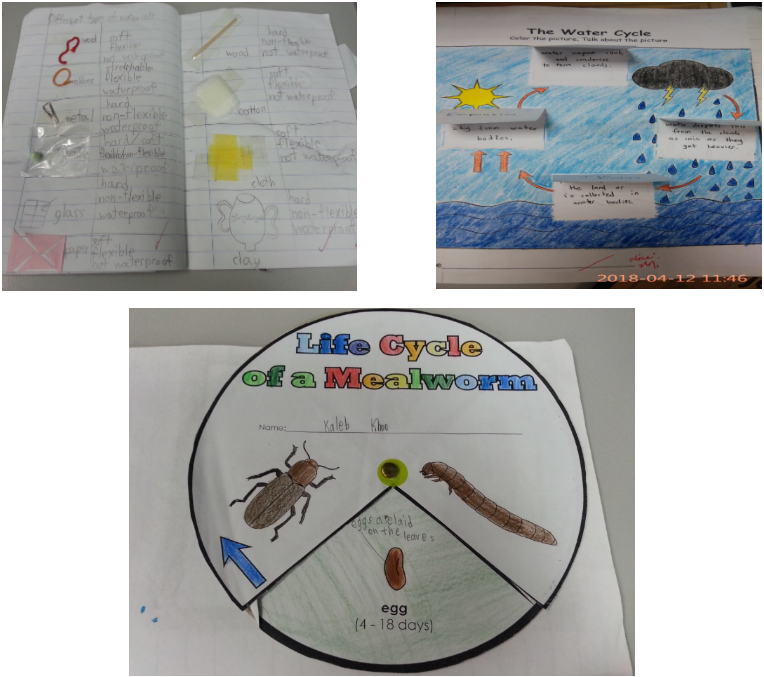 Different type of materials
soft
flexible
stretchable
flexible
waterproof
metal
hard
non-flexible
waterproof
hard/soft
waterproof
glass
hard
non-flexible
waterproof
paper
soft
flexible
not waterproof
wood
hard
non-flexible
not waterproof
cotton
soft
flexible
not waterproof
cloth
soft
flexible
not waterproof
clay
hard
non-flexible
waterproof
The Water Cycle
Color the picture. Talk about the picture.
water vapor cools
and condenses
to form clouds.
from water
bodies.
from the clouds
as rain as they
get heavier.
the land or
is collected in
water bodies.
2018-04-12 11:46
Life Cycle
of a Mealworm
Name: Kaleb Khoo
eggs are laid
on the leaves
egg
(4 - 18 days)